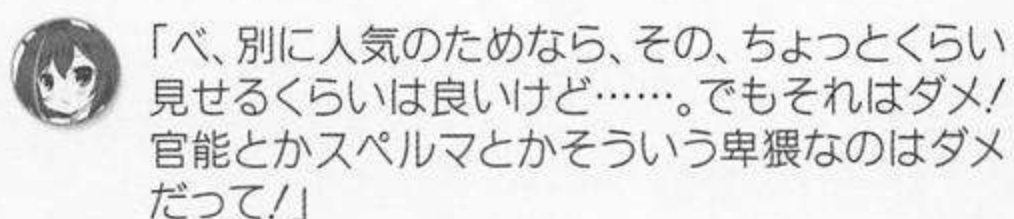 「べ、別に人気のためなら、その、ちょっとくらい
見せるくらいは良いけど……。でもそれはダメ!
官能とかスペルマとかそういう卑猥なのはダメ
だって!」